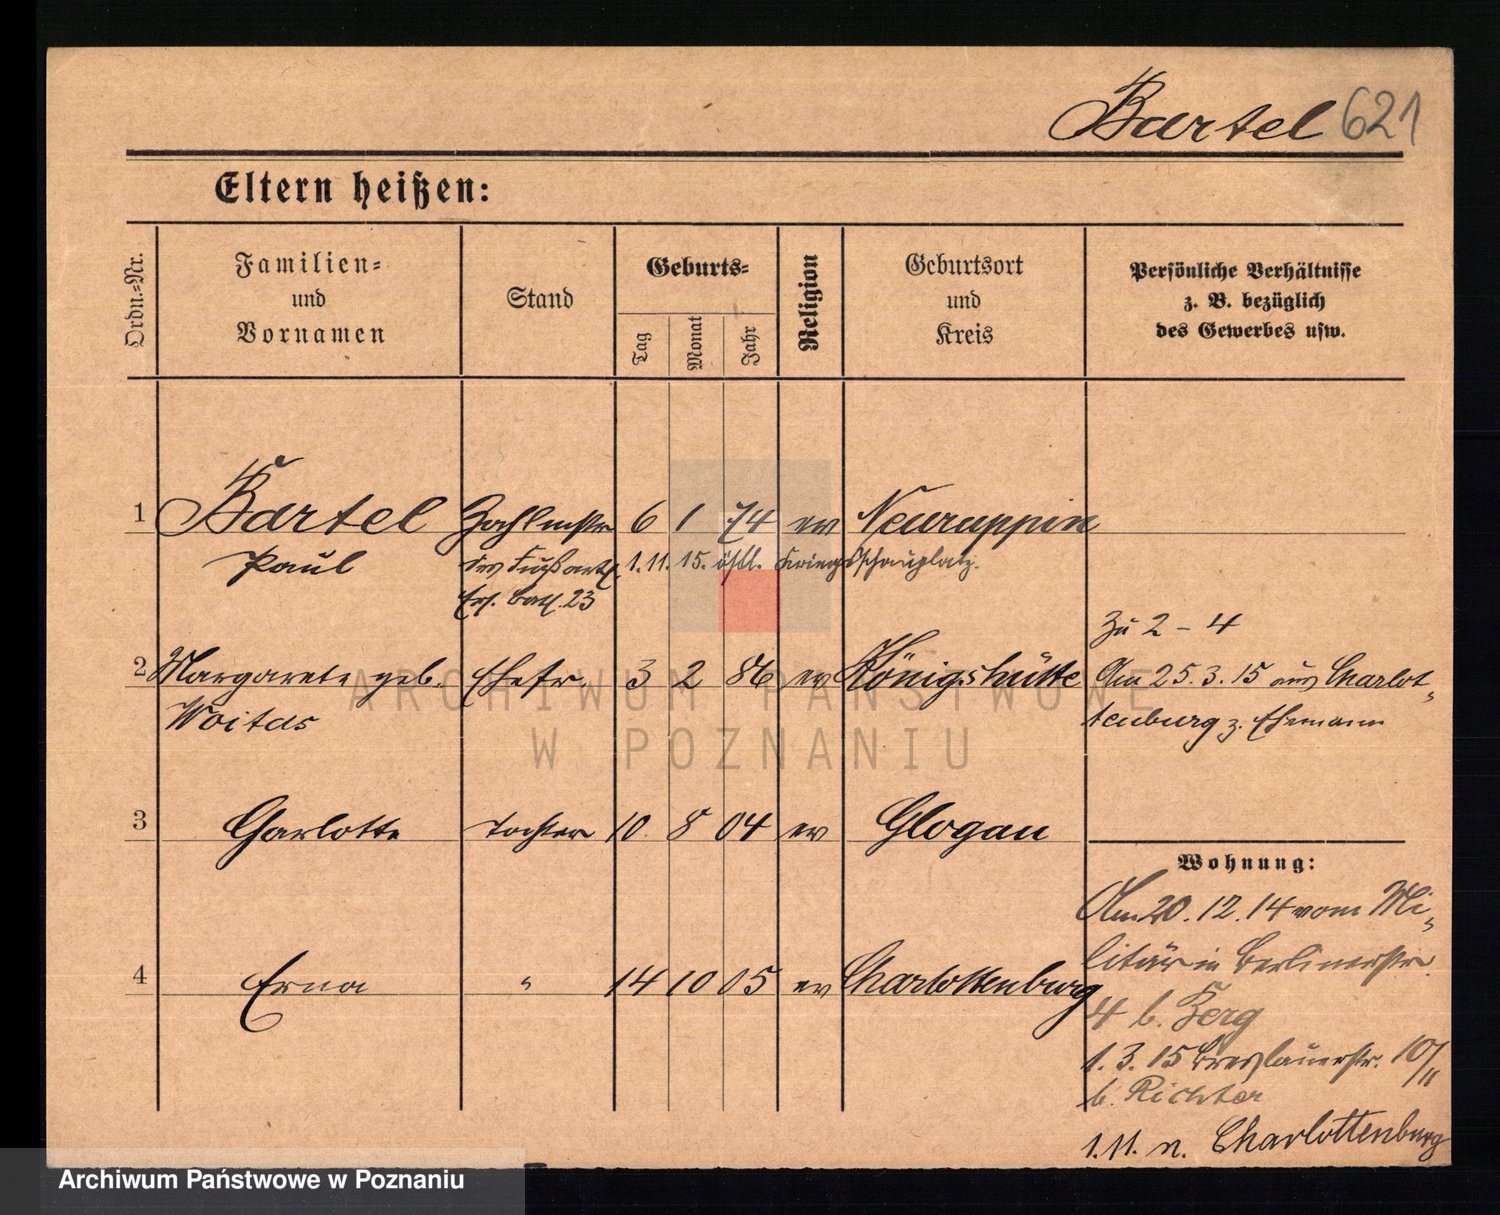 Bartel 621
Eltern heißen:
Ordn.=Nr.
Familien=
und
Vornamen
Stand
Geburts=
Tag
Monat
Jahr
Religion
Geburtsort
und
Kreis
Persönliche Verhältnisse
z. B. bezüglich
des Gewerbes usw.
1 Bartel Zahlmstr 6 1 74 ev Neuruppin
Paul des Fußartl. 1.11.15. östl. Kriegsschauplatz.
Ers. Batl. 23
Zu 2 - 4
2 Margarete geb. Ehefr. 3 2 86 ev Königshütte Am 25.3.15 aus Charlot-
Woitas tenburg z. Ehemann
ARCHIWUM PAŃSTWOWE
W POZNANIU
3 Garlotte Tochter 10. 8 04 ev Glogau
Wohnung:
Am 20.12.14 vom Mi-
litär in Berlinerstr.
4 Erna " 14 10 05 ev Charlottenburg
4 b. Berg
1.3.15 Breslauerstr. 10/II
b. Richter
1.11. n. Charlottenburg
Archiwum Państwowe w Poznaniu